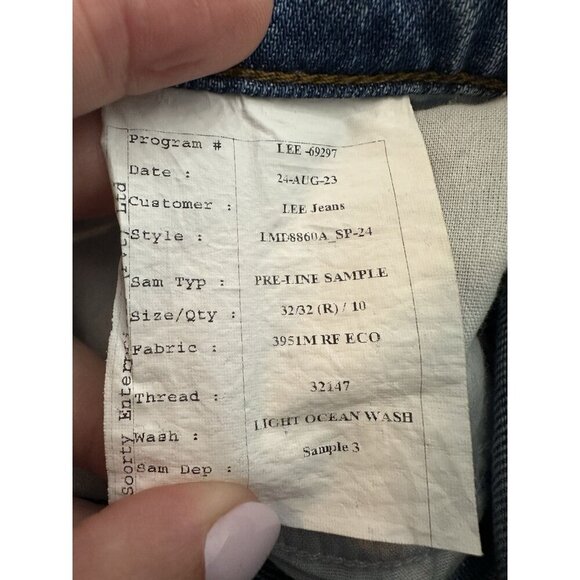 Program # LEE -69297
Date : 24-AUG-23
Customer : LEE Jeans
Style : LMD8860A_SP-24
Sam Typ : PRE-LINE SAMPLE
Size/Qty : 32/32 (R) / 10
Fabric : 3951M RF ECO
Thread : 32147
Wash : LIGHT OCEAN WASH
Sam Dep : Sample 3
Soorty Ltd